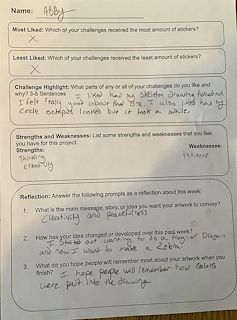 Name: Abby
Most Liked: Which of your challenges received the most amount of stickers?
X
Least Liked: Which of your challenges received the least amount of stickers?
X
Challenge Highlight: What parts of any or all of your challenges do you like and
why? 3-5 Sentences I liked how my skeleton drawing turned out
I felt really good about that one. I also liked how my
circle octopus looked but it took a while.
Strengths and Weaknesses: List some strengths and weaknesses that you feel
you have for this project.
Strengths: Weaknesses:
Thinking Patience
creativity
Reflection: Answer the following prompts as a reflection about this week:
1. What is the main message, story, or idea you want your artwork to convey?
Creativity and peacefulness
2. How has your idea changed or developed over this past week?
I started out wanting to do a or Dragon
and now I want to make a Zebra
3. What do you hope people will remember most about your artwork when you
finish? I hope people will remember how colors
were put into the drawing